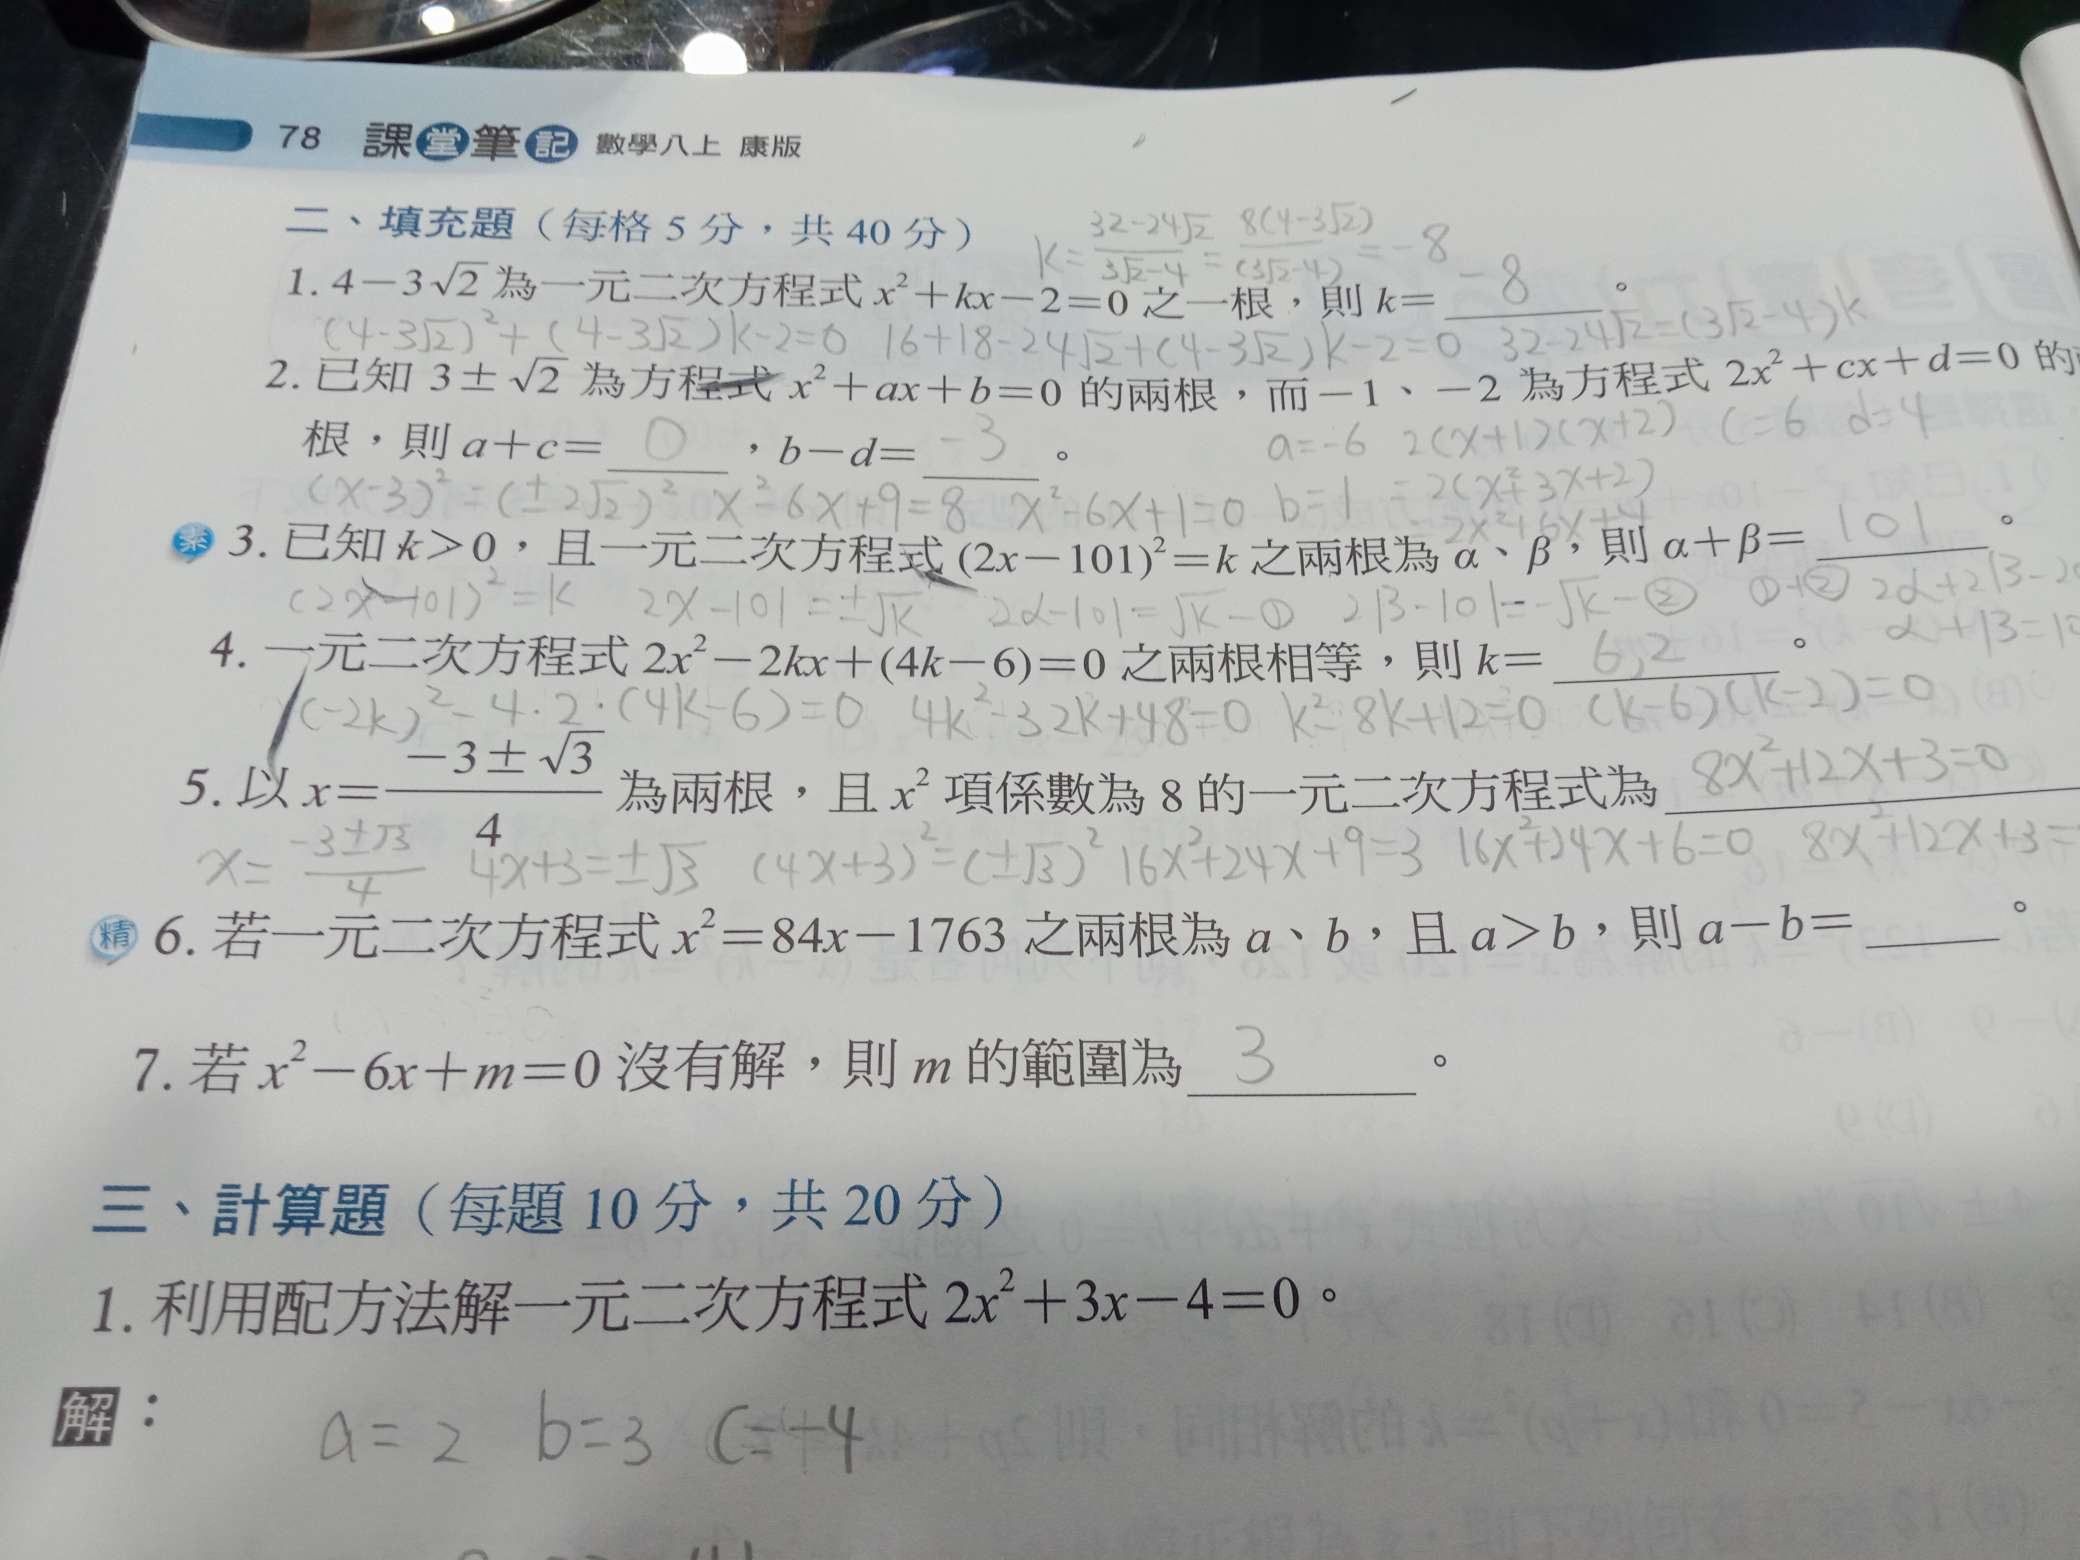 78 課堂筆記 數學八上 康版
二、填充題（每格 5 分，共 40 分）
k=(32-24√2)/(3√2-4)=8(4-3√2)/(3√2-4)=-8
1. 4－3√2 為一元二次方程式 x²＋kx－2＝0 之一根，則 k＝ -8 。
(4-3√2)²+(4-3√2)k-2=0 16+18-24√2+(4-3√2)k-2=0 32-24√2=(3√2-4)k
2. 已知 3±√2 為方程式 x²＋ax＋b＝0 的兩根，而－1、－2 為方程式 2x²＋cx＋d＝0 的
根，則 a＋c＝ 0 ，b－d＝ -3 。 a=-6 2(x+1)(x+2) c=6 d=4
(x-3)²=(±2√2)² x²-6x+9=8 x²-6x+1=0 b=1 =2(x²+3x+2)
=2x²+6x+4
素 3. 已知 k＞0，且一元二次方程式 (2x－101)²＝k 之兩根為 α、β，則 α＋β＝ 101 。
(2x-101)²=k 2x-101=±√k 2α-101=√k-① 2β-101=-√k-② ①+② 2α+2β-20
α+β=10
4. 一元二次方程式 2x²－2kx＋(4k－6)＝0 之兩根相等，則 k＝ 6,2 。
(-2k)²-4·2·(4k-6)=0 4k²-32k+48=0 k²-8k+12=0 (k-6)(k-2)=0
5. 以 x＝(－3±√3)/4 為兩根，且 x² 項係數為 8 的一元二次方程式為 8x²+12x+3=0
x=(-3±√3)/4 4x+3=±√3 (4x+3)²=(±√3)² 16x²+24x+9=3 16x²+24x+6=0 8x²+12x+3=
精 6. 若一元二次方程式 x²＝84x－1763 之兩根為 a、b，且 a＞b，則 a－b＝ 。
7. 若 x²－6x＋m＝0 沒有解，則 m 的範圍為 3 。
三、計算題（每題 10 分，共 20 分）
1. 利用配方法解一元二次方程式 2x²＋3x－4＝0。
解：
a=2 b=3 c=-4